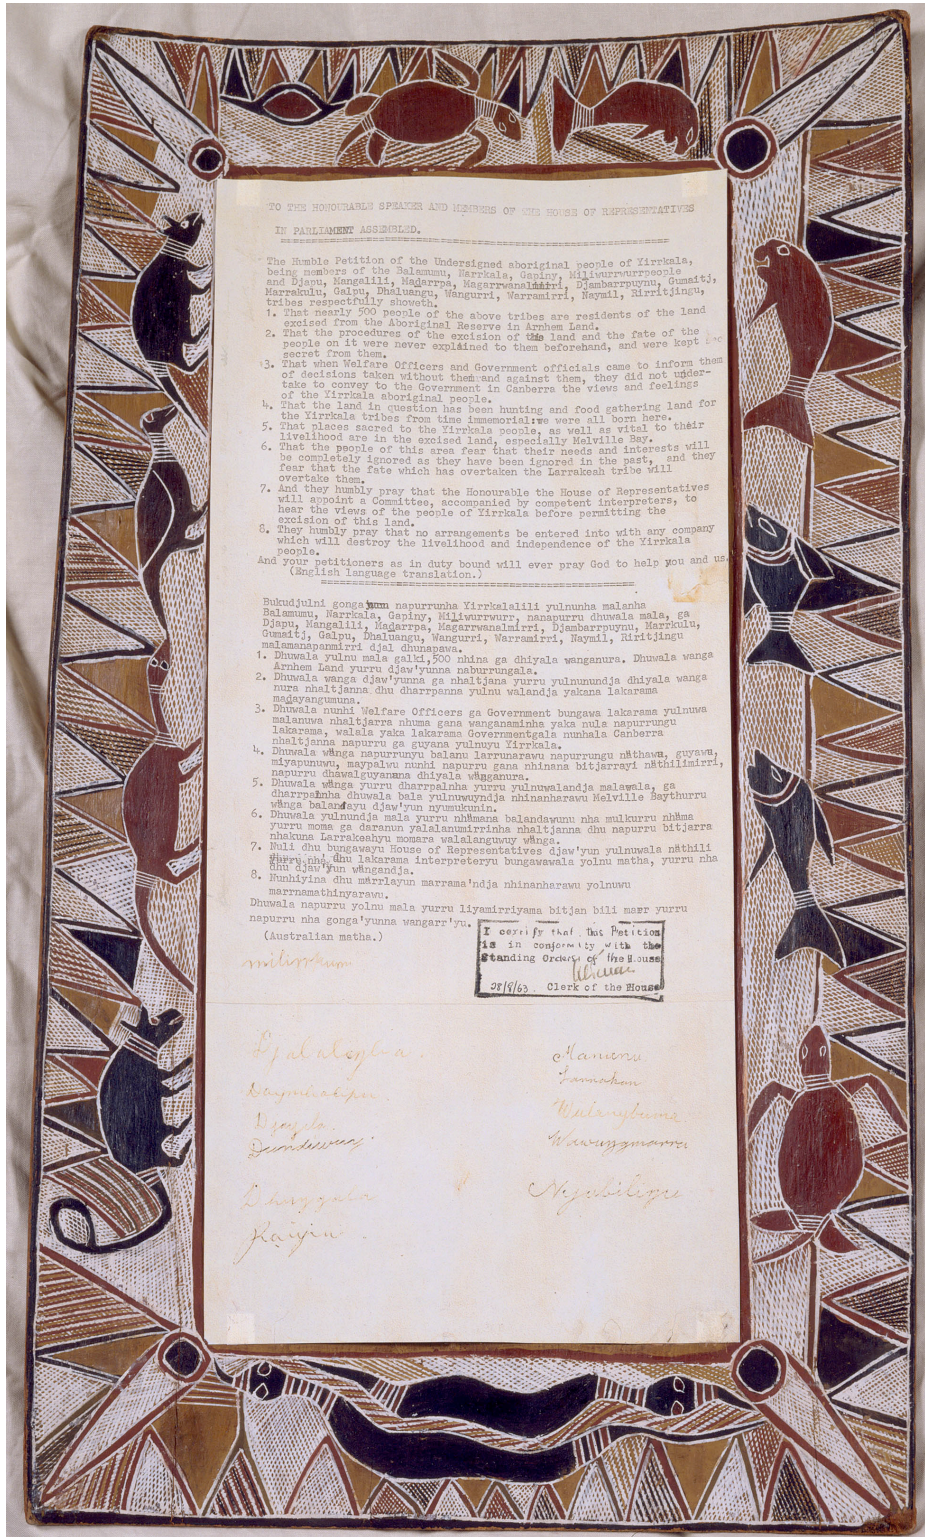 TO THE HONOURABLE SPEAKER AND MEMBERS OF THE HOUSE OF REPRESENTATIVES
IN PARLIAMENT ASSEMBLED.
The Humble Petition of the Undersigned aboriginal people of Yirrkala,
being members of the Balamumu, Narrkala, Gapiny, Miliwurrwurrpeople
and Djapu, Mangalili, Madarrpa, Magarrwanalmirri, Djambarrpuynu, Gumaitj,
Marrakulu, Galpu, Dhaluangu, Wangurri, Warramirri, Naymil, Rirritjingu,
tribes respectfully showeth.
1. That nearly 500 people of the above tribes are residents of the land
excised from the Aboriginal Reserve in Arnhem Land.
2. That the procedures of the excision of this land and the fate of the
people on it were never explained to them beforehand, and were kept
secret from them.
3. That when Welfare Officers and Government officials came to inform them
of decisions taken without them and against them, they did not under-
take to convey to the Government in Canberra the views and feelings
of the Yirrkala aboriginal people.
4. That the land in question has been hunting and food gathering land for
the Yirrkala tribes from time immemorial:we were all born here.
5. That places sacred to the Yirrkala people, as well as vital to their
livelihood are in the excised land, especially Melville Bay.
6. That the people of this area fear that their needs and interests will
be completely ignored as they have been ignored in the past, and they
fear that the fate which has overtaken the Larrakeah tribe will
overtake them.
7. And they humbly pray that the Honourable the House of Representatives
will appoint a Committee, accompanied by competent interpreters, to
hear the views of the people of Yirrkala before permitting the
excision of this land.
8. They humbly pray that no arrangements be entered into with any company
which will destroy the livelihood and independence of the Yirrkala
people.
And your petitioners as in duty bound will ever pray God to help you and us.
(English language translation.)
Bukudjulni gonga napurrunha Yirrkalalili yulnunha malanha
Balamumu, Narrkala, Gapiny, Miliwurrwurr, nanapurru dhuwala mala, ga
Djapu, Mangalili, Madarrpa, Magarrwanalmirri, Djambarrpuynu, Marrkulu,
Gumaitj, Galpu, Dhaluangu, Wangurri, Warramirri, Naymil, Riritjingu
malamanapanmirri djal dhunapawa.
1. Dhuwala yulnu mala galki,500 nhina ga dhiyala wanganura. Dhuwala wanga
Arnhem Land yurru djaw'yunna naburrungala.
2. Dhuwala wanga djaw'yunna ga nhaltjana yurru yulnunundja dhiyala wanga
nura nhaltjanna dhu dharrpanna yulnu walandja yakana lakarama
madayangumuna.
3. Dhuwala nunhi Welfare Officers ga Government bungawa lakarama yulnuwa
malanuwa nhaltjarra nhuma gana wanganaminha yaka nula napurrungu
lakarama, walala yaka lakarama Governmentgala nunhala Canberra
nhaltjanna napurru ga guyana yulnuyu Yirrkala.
4. Dhuwala wänga napurrunyu balanu larrunarawu napurrungu näthawa, guyawu,
miyapunuwu, maypalwu nunhi napurru gana nhinana bitjarrayi näthilimirri,
napurru dhawalguyanana dhiyala wänganura.
5. Dhuwala wänga yurru dharrpalnha yurru yulnuwalandja malawala, ga
dharrpalnha dhuwala bala yulnuwuyndja nhinanharawu Melville Baythurru
wänga balandayu djaw'yun nyumukunin.
6. Dhuwala yulnundja mala yurru nhämana balandawunu nha mulkurru nhäma
yurru moma ga daranun yalalanumirrinha nhaltjanna dhu napurru bitjarra
nhakuna Larrakeahyu momara walalanguwuy wänga.
7. Nuli dhu bungawayu House of Representatives djaw'yun yulnuwala näthili
yurru nha dhu lakarama interpreteryu bungawawala yolnu matha, yurru nha
dhu djaw'yun wängandja.
8. Nunhiyina dhu märrlayun marrama'ndja nhinanharawu yolnuwu
marrnamathinyarawu.
Dhuwala napurru yolnu mala yurru liyamirriyama bitjan bili marr yurru
napurru nha gonga'yunna wangarr'yu.
(Australian matha.)
I certify that this Petition
is in conformity with the
Standing Orders of the House
28/8/63. Clerk of the House
milirrkum
Djalalingba
Daymbalipu
Djayila
Dundiwuy
Dhunggala
Raiyin
Manunu
Larrakan
Wulanybuma
Wawunggmarra
Nyabilingu